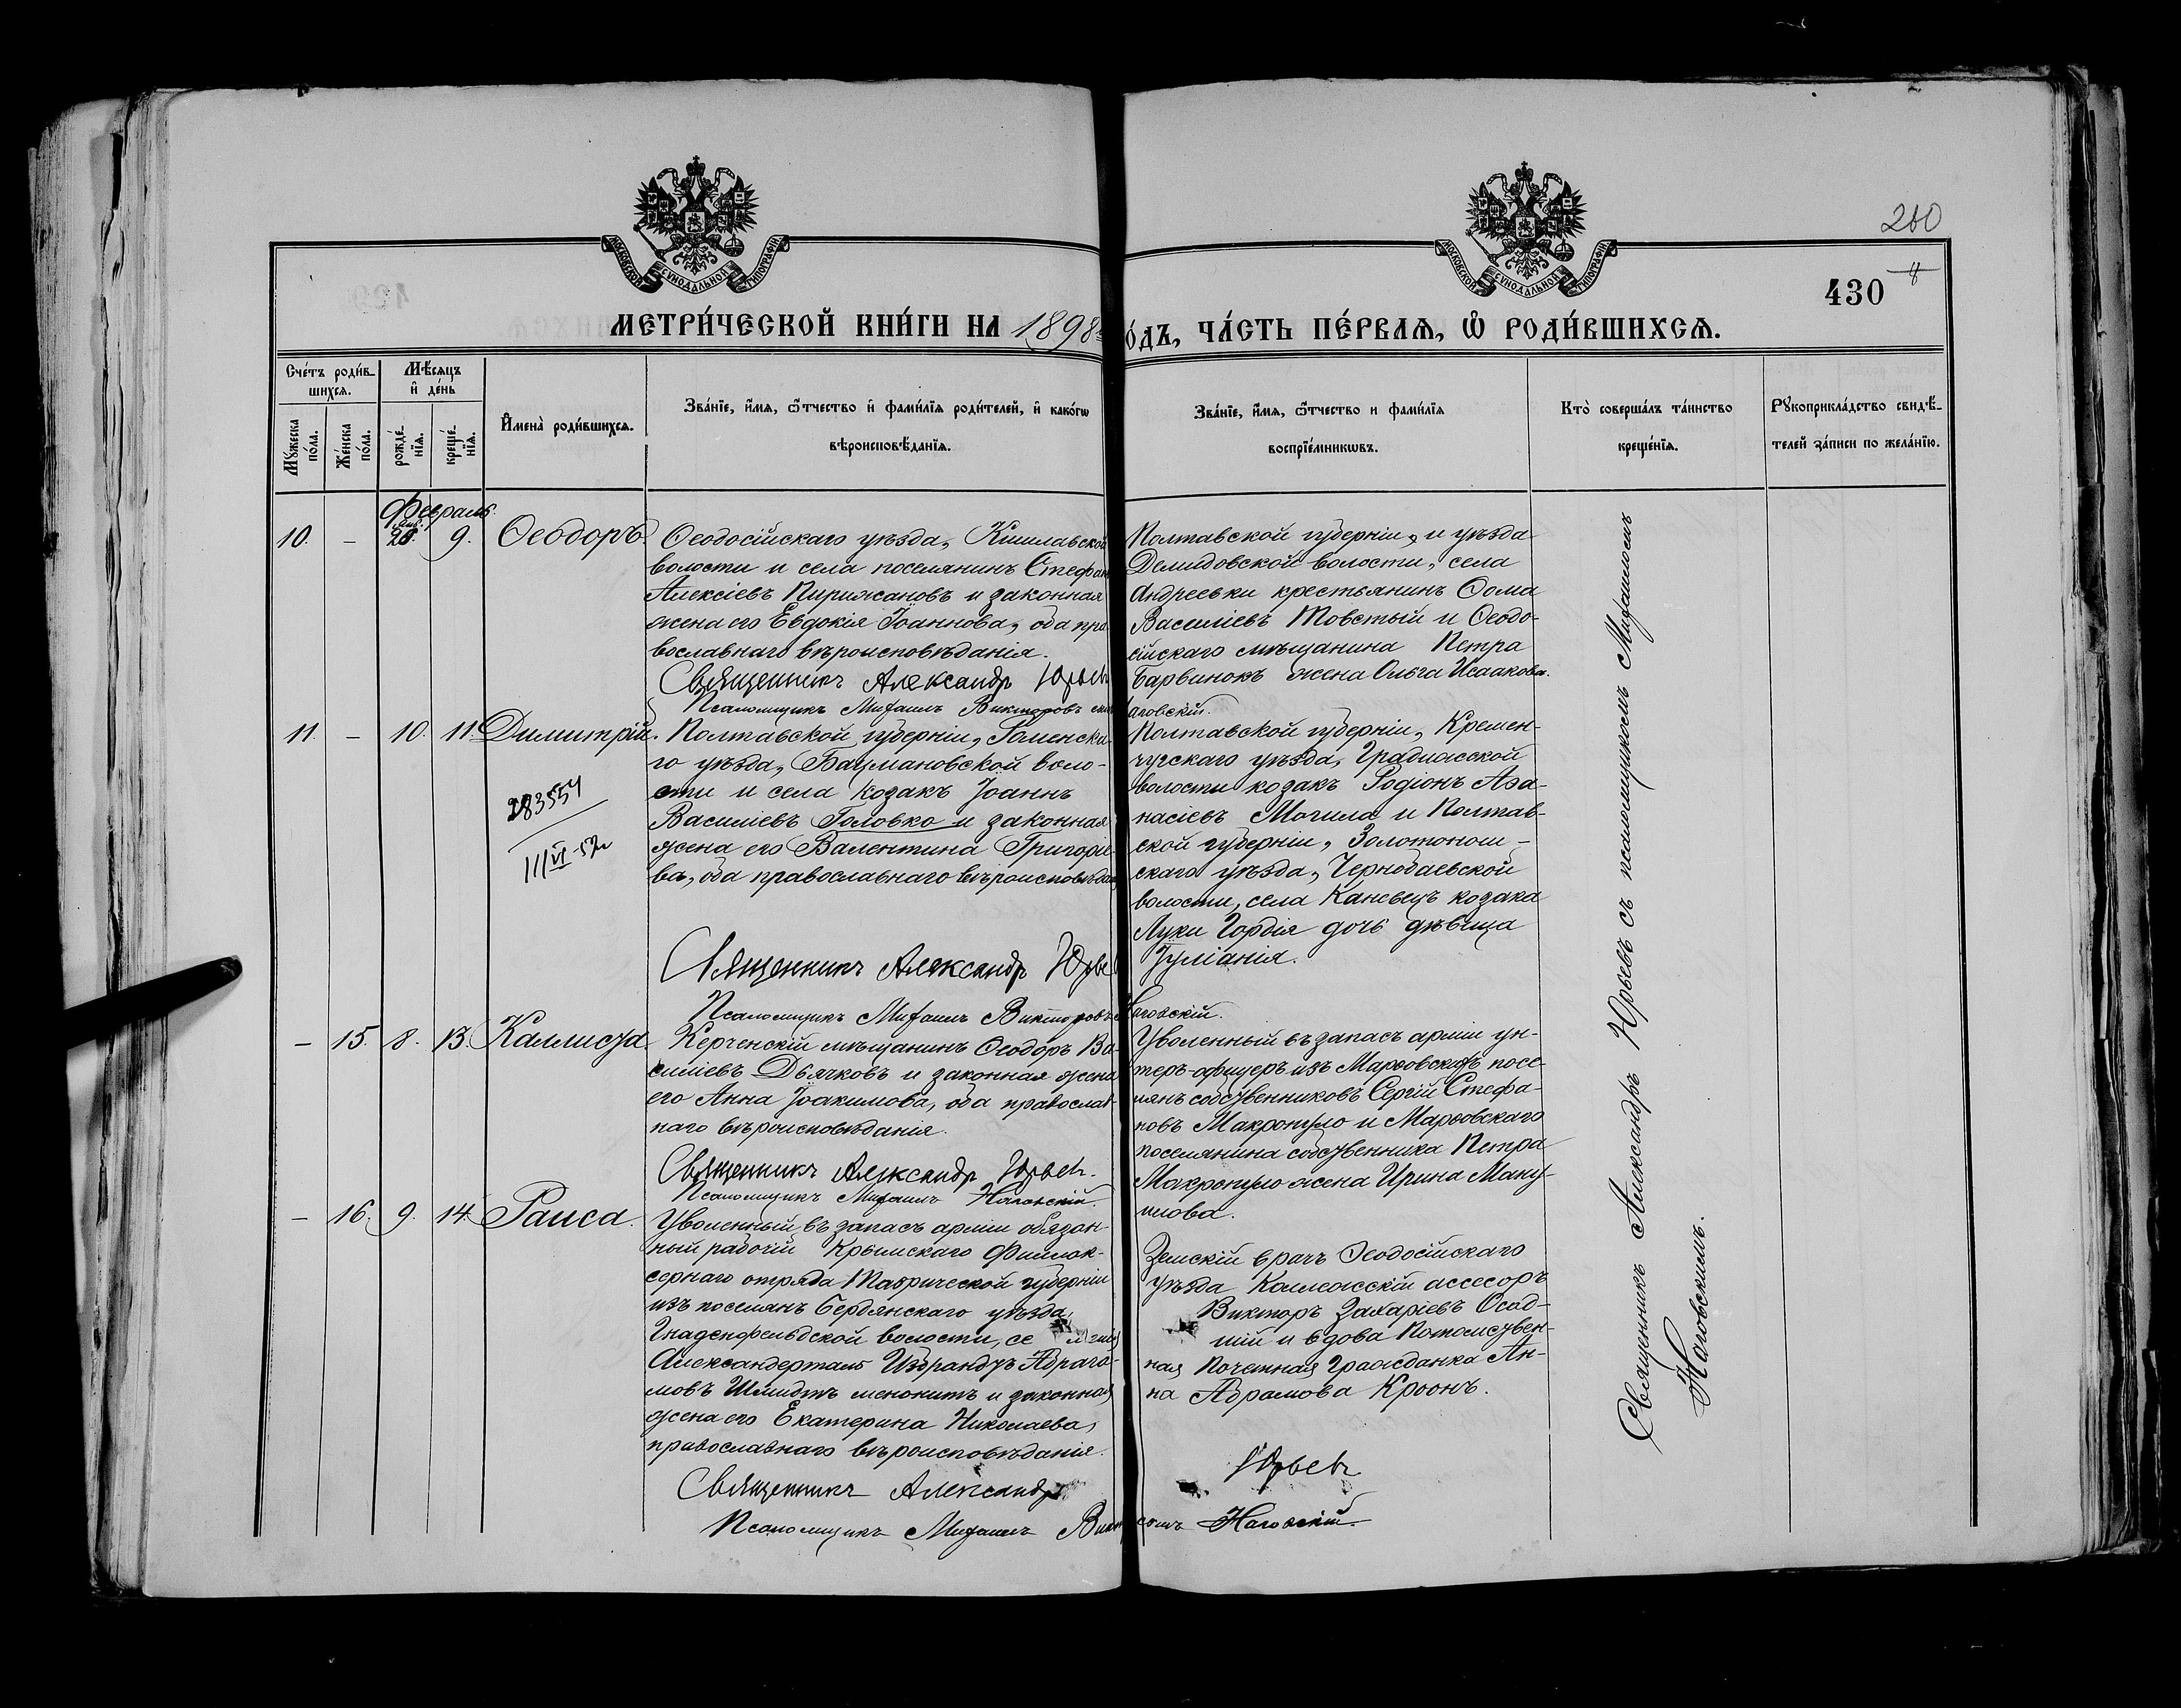 МОСКОВСКОЙ СѴНОДАЛЬНОЙ ТИПОГРАФІИ
МОСКОВСКОЙ СѴНОДАЛЬНОЙ ТИПОГРАФІИ
430
МЕТРИ́ЧЕСКОЙ КНИ́ГИ НА 1898
О́ДЪ, ЧА́СТЬ ПЕ́РВАѦ, Ѡ҆ РОДИ́ВШИХСѦ.
Сче́тъ роди́в-
шихсѧ.
Мꙋ́жеска по́ла.
Же́нска по́ла.
Мѣ́сѧцъ
и҆ де́нь
рожде́-
нїѧ.
креще́-
нїѧ.
И҆мена̀ роди́вшихсѧ.
Зва́нїе, и҆́мѧ, ѻ҆́тчество и҆ фами́лїѧ роди́телей, и҆ како́гѡ
вѣроисповѣ́данїѧ.
Зва́нїе, и҆́мѧ, ѻ҆́тчество и фами́лїѧ
воспрїе́мникѡвъ.
Кто̀ соверша́лъ та́инство
креще́нїѧ.
Рꙋкоприкла́дство свидѣ́-
телей за́писи по жела́нїю.
Февраль.
10. – 9. Ѳеодоръ.
Ѳеодосійскаго уѣзда, Кишлавской
волости и села поселянинъ Стефан
Алексіевъ Пирижановъ и законная
жена его Евдокія Іоаннова, оба пра-
вославнаго вѣроисповѣданія.
Священникъ Александр Юрьев
Псаломщикъ Михаилъ Викторовъ
Полтавской губерніи, и уѣзда
Демидовской волости, села
Андреевки крестьянинъ Ѳома
Василіевъ Товстый и Ѳеодо-
сійскаго мѣщанина Петра
Барвинокъ жена Ольга Исаакова.
аговскій.
11. – 10. 11. Димитрій.
283554
III VI-52
Полтавской губерніи, Роменска-
го уѣзда, Бацмановской воло-
сти и села козакъ Іоаннъ
Василіевъ Головко и законная
жена его Валентина Григорье-
ва, оба православнаго вѣроисповѣдан
Священникъ Александр Юрьев
Псаломщикъ Михаилъ Викторовъ
Полтавской губерніи, Кремен-
чугскаго уѣзда, Градижской
волости козакъ Родіонъ Аѳа-
насіевъ Могила и Полтав-
ской губерніи, Золотонош-
скаго уѣзда, Чернобаевской
волости, села Каневецъ козака
Луки Гордія дочь дѣвица
Іуліанія.
Наговскій.
– 15. 8. 13. Каллиста.
Керченскій мѣщанинъ Ѳеодоръ Ва-
силіевъ Дьячковъ и законная жена
его Анна Іоакимова, оба православ-
наго вѣроисповѣданія.
Священникъ Александр Юрьевъ.
Псаломщикъ Михаилъ Наговскій.
Уволенный въ запасъ арміи ун-
теръ-офицеръ изъ Марѳовскихъ посе-
лянъ собственниковъ Сергій Стефа-
новъ Макропуло и Марѳовскаго
поселянина собственника Петра
Макропуло жена Ирина Ману-
илова.
– 16. 9. 14. Раиса.
Уволенный въ запасъ арміи обязан-
ный рабочій Крымскаго Филлок-
сернаго отряда Таврической губерніи
изъ поселянъ Бердянскаго уѣзда,
Гнаденфельдской волости, се
Александерталь Избрандъ Абраго-
мовъ Шмидтъ менонитъ и законная
жена его Екатерина Николаева,
православнаго вѣроисповѣданія.
Священникъ Александр
Псаломщикъ Михаилъ
Земскій врачъ Ѳеодосійскаго
уѣзда Коллежскій ассесоръ
Викторъ Захаріевъ Осад-
чій и вдова Потомствен-
ная Почетная Гражданка Ан-
на Абрамова Кроонъ.
Юрьевъ
Наговскій.
Священникъ Александръ Юрьевъ съ псаломщикомъ Михаиломъ
Наговскимъ.